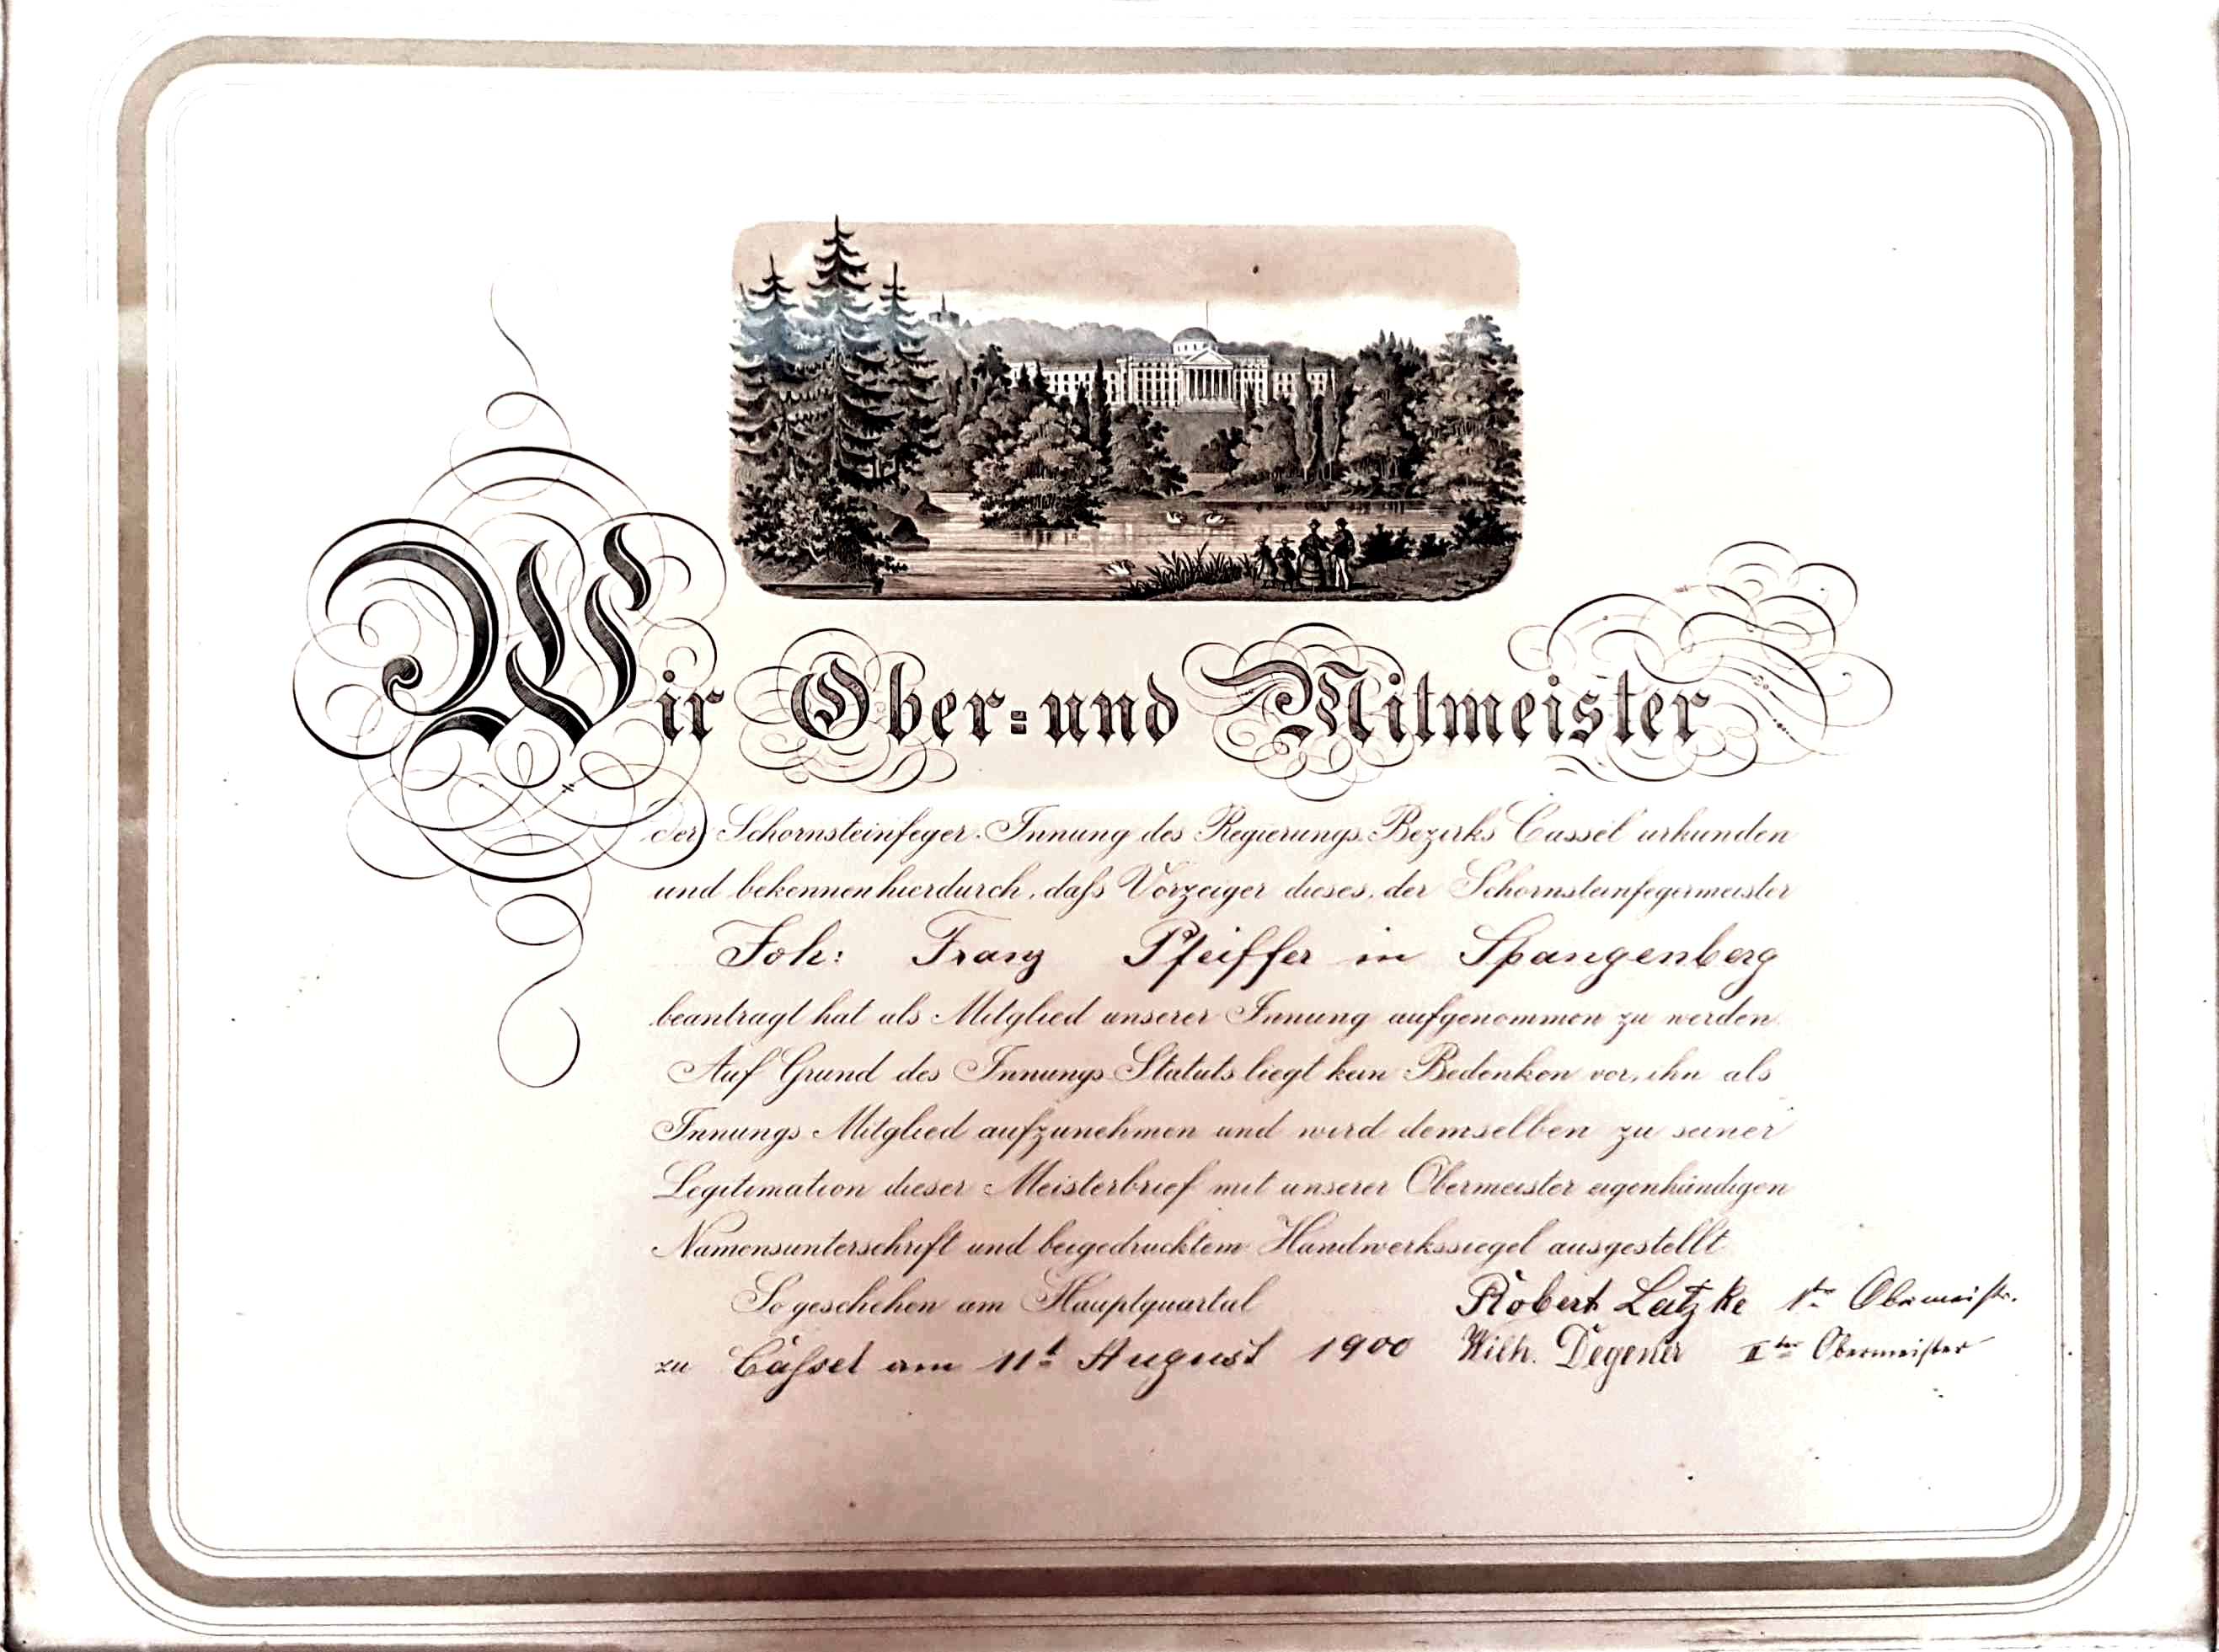 Wir Ober=und Mitmeister
der Schornsteinfeger-Innung des Regierungs-Bezirks Cassel urkunden
und bekennen hierdurch, daſs Vorzeiger dieses, der Schornsteinfegermeister
Joh: Franz Pfeiffer in Spangenberg
beantragt hat als Mitglied unserer Innung aufgenommen zu werden.
Auf Grund des Innungs-Statuts liegt kein Bedenken vor, ihn als
Innungs-Mitglied aufzunehmen und wird demselben zu seiner
Legitimation dieser Meisterbrief mit unserer Obermeister eigenhändigen
Namensunterschrift und beigedrucktem Handwerkssiegel ausgestellt
So geschehen am Hauptquartal
zu Caſsel am 11t August 1900
Robert Latzke 1ter Obermeistr.
Wilh. Degener IIter Obermeister